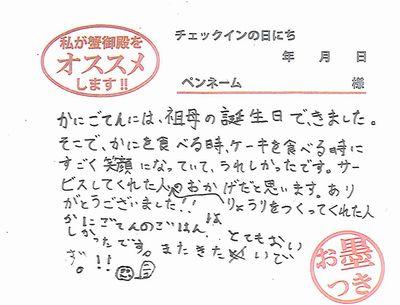 私が蟹御殿を
オススメ
します!!
チェックインの日にち
年 月 日
ペンネーム 様
かにごてんには、祖母の誕生日できました。
そこで、かにを食べる時、ケーキを食べる時に
すごく笑顔になっていて、うれしかったです。サー
ビスしてくれた人のおかげだと思います。あり
がとうございました!! りょうりをつくってくれた人
かにごてんのごはんは、とてもおい
しかったです。またきたいで
す。!!
お墨
つき